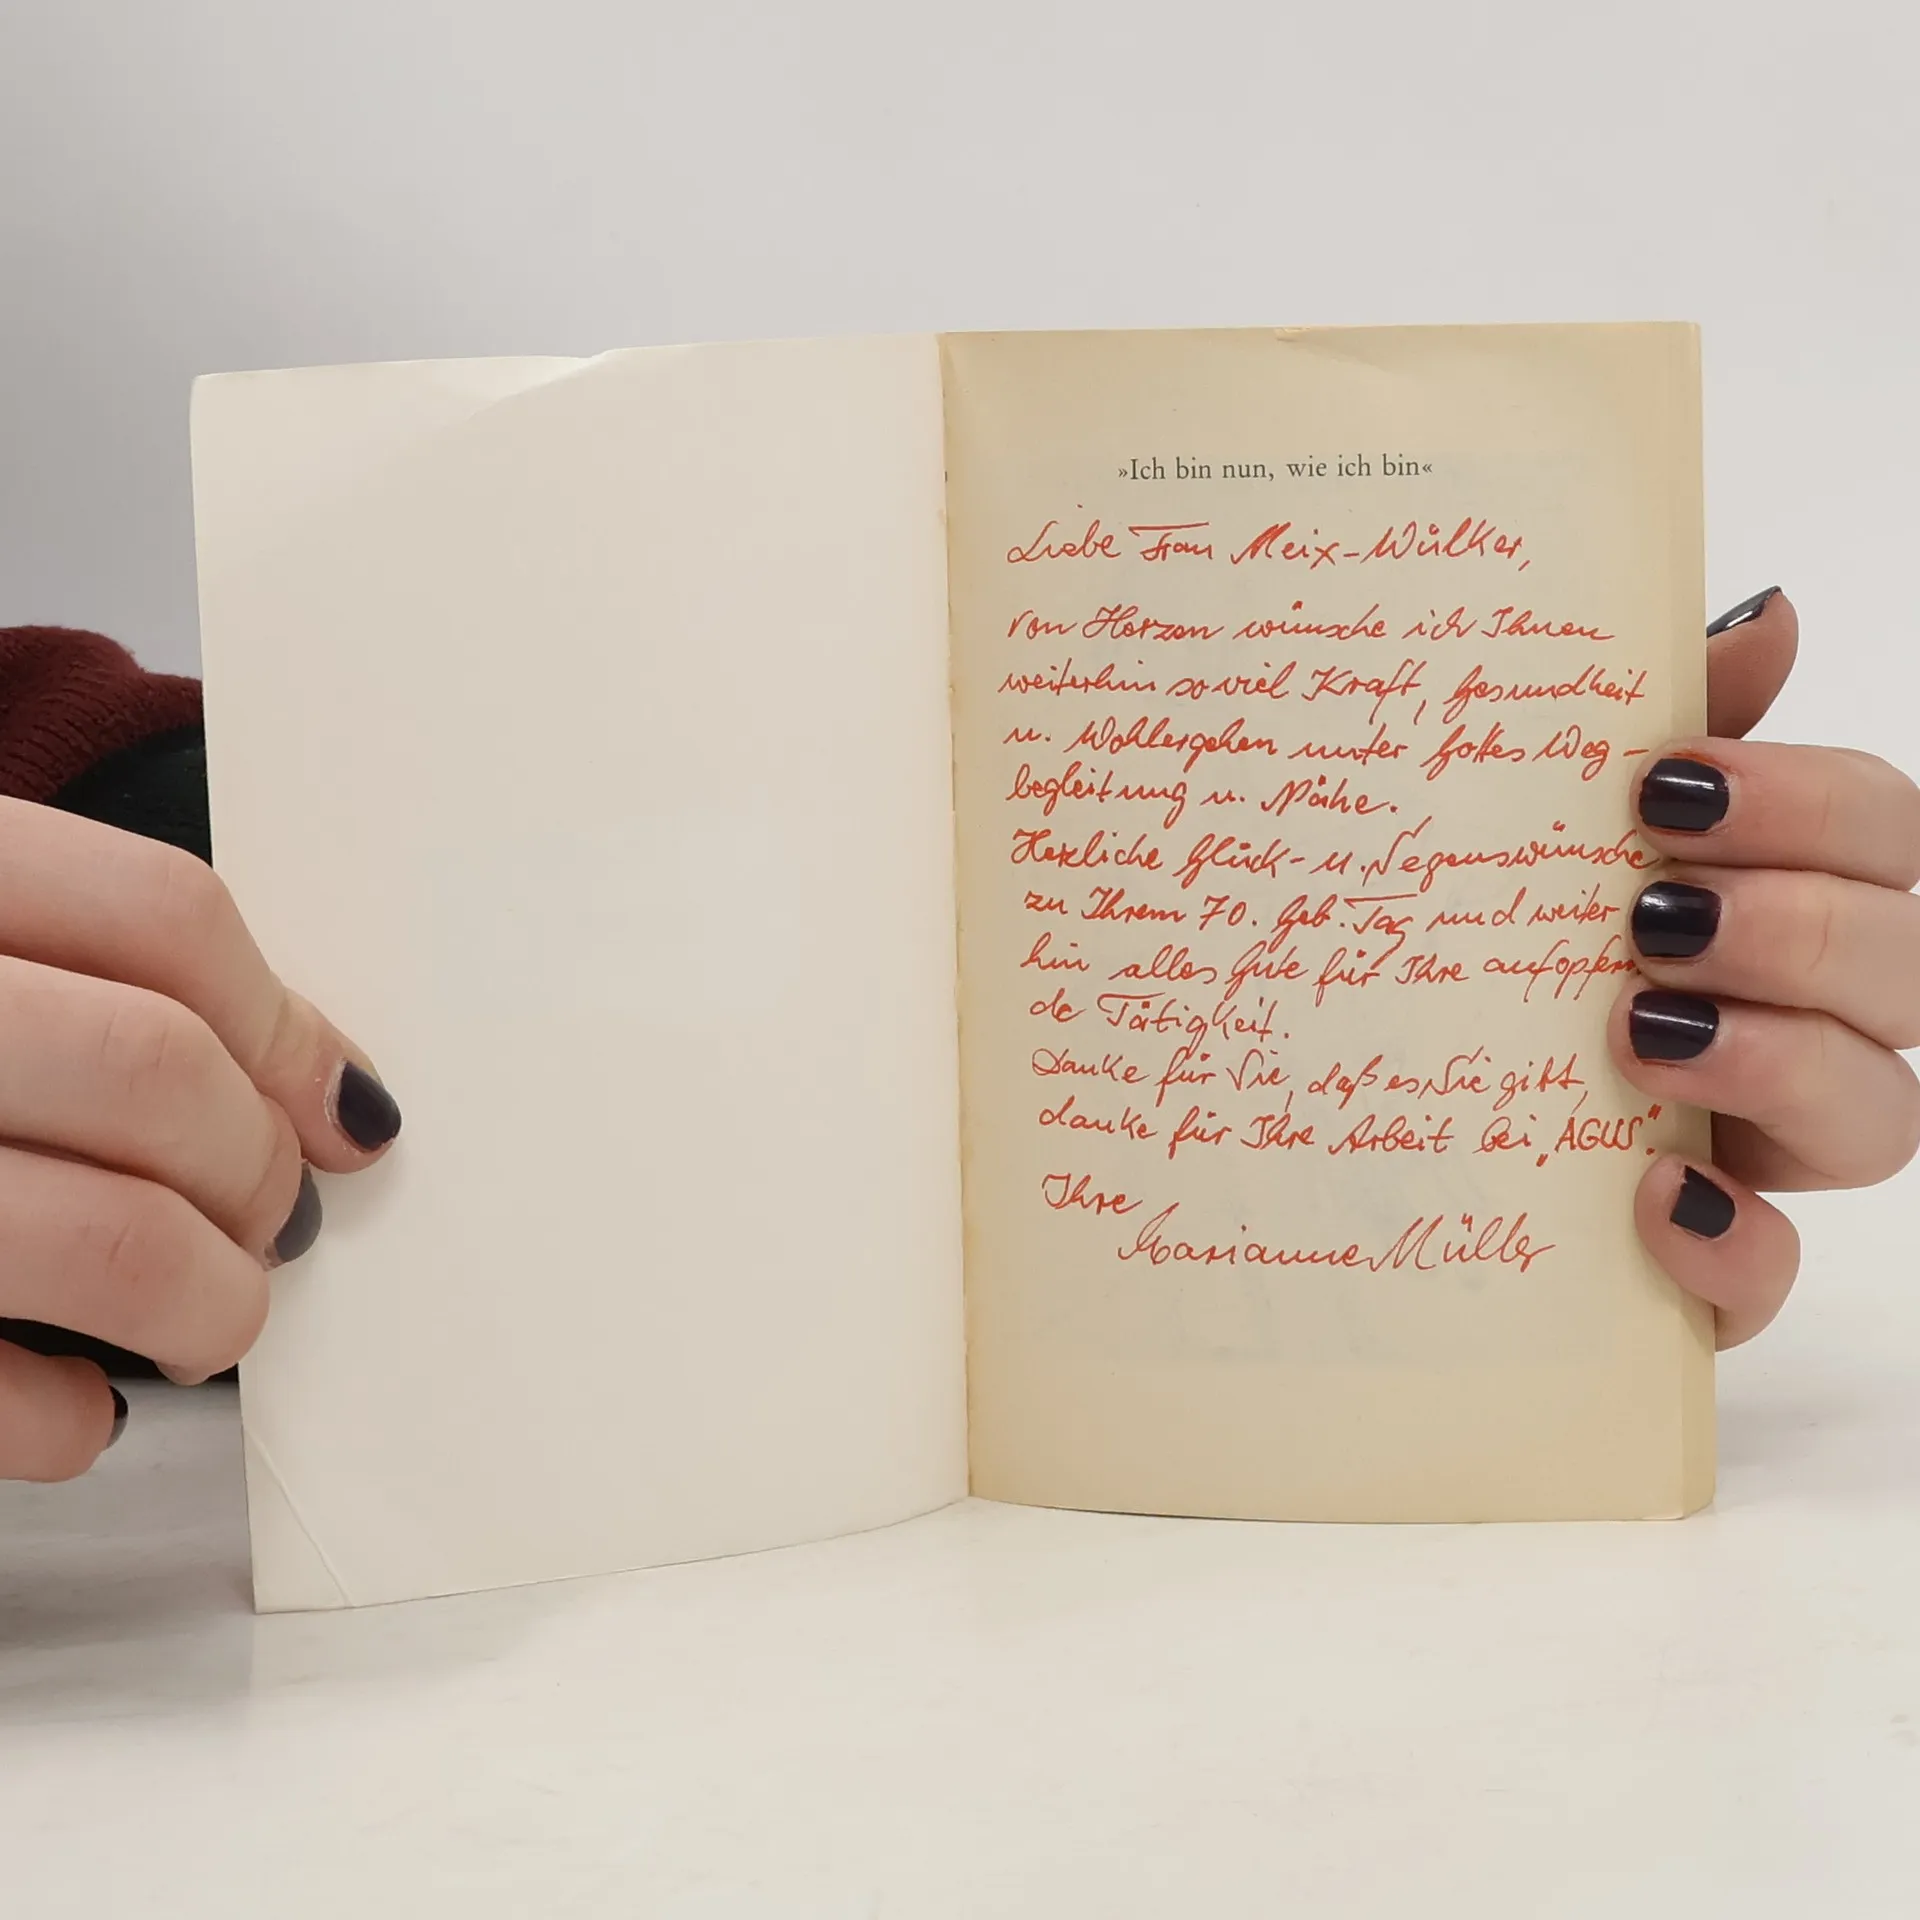 »Ich bin nun, wie ich bin«
Liebe Frau Meix-Wülker,
von Herzen wünsche ich Ihnen
weiterhin so viel Kraft, Gesundheit
u. Wohlergehen unter Gottes Weg-
begleitung u. Nähe.
Herzliche Glück- u. Segenswünsche
zu Ihrem 70. Geb. Tag und weiter
hin alles Gute für Ihre aufopfern
de Tätigkeit.
Danke für Sie, daß es Sie gibt,
danke für Ihre Arbeit bei „AGUS“.
Ihre
Marianne Müller